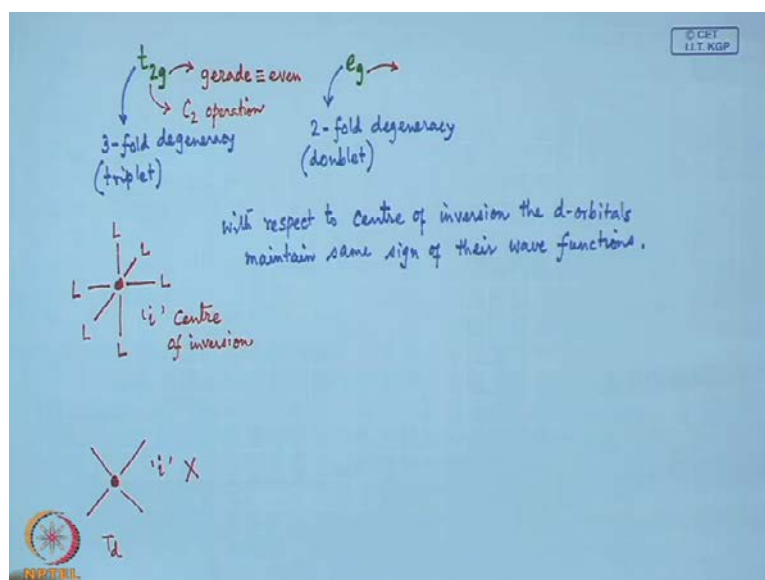 © CET
I.I.T. KGP
t2g → gerade ≡ even
→ C2 operation
3-fold degeneracy
(triplet)
eg →
2-fold degeneracy
(doublet)
with respect to centre of inversion the d-orbitals
maintain same sign of their wave functions.
L
L L
L L
L
'i' centre
of inversion
'i' X
Td
NPTEL